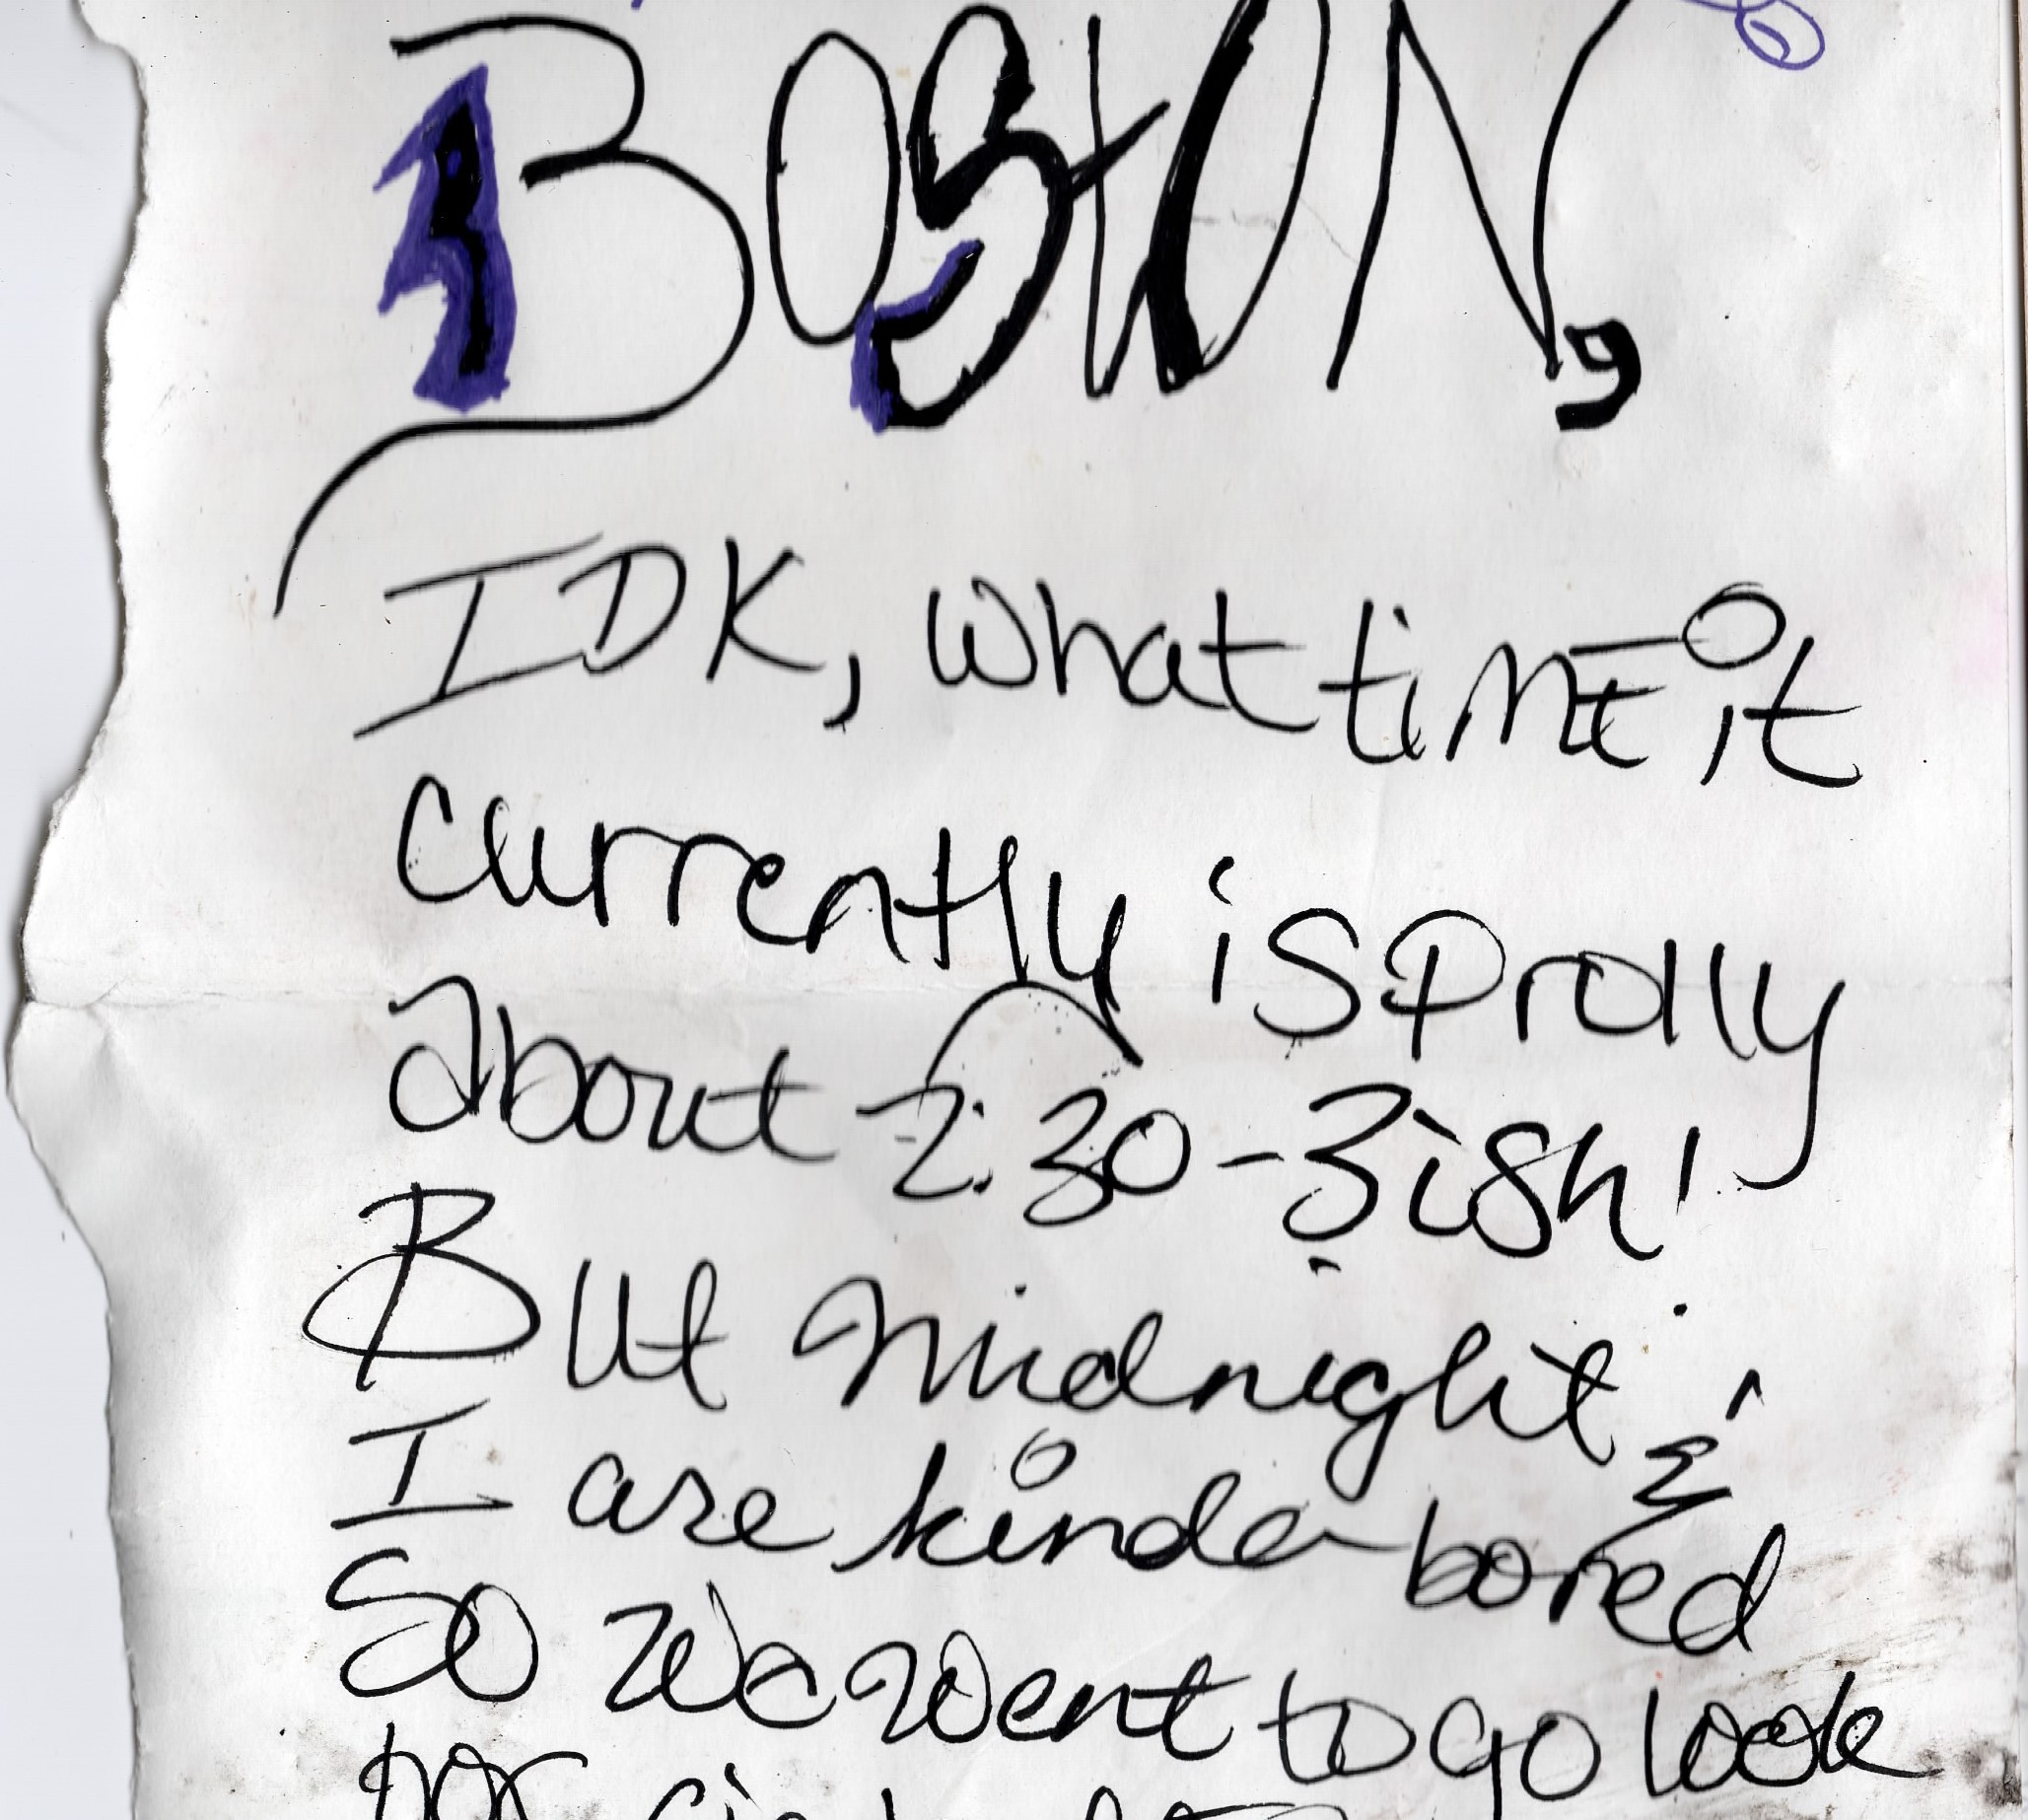 BostON,
IDK, what time it
currently is prolly
about 2:30-3ish!
But midnight &
I are kinda bored
So we went to go look
for